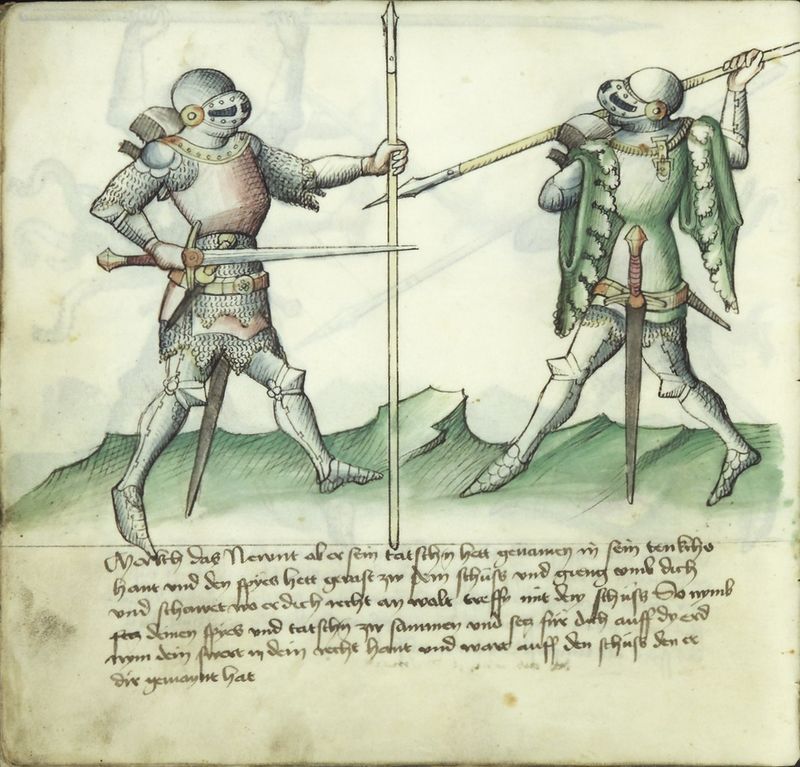 Merckh das Newnt ob er sein tatschn hett genumen in sein tenckhe
hant vnd den spyes hett gefast zw dem schuss vnd gieng vmb dich
vnd schawet wo er dich recht an wolt treffn mit dem schuss So nymb
deinen spyes vnd tatschn zw sammen vnd secz für dich auff dy erd
nym dein swert in dein recht hant vnd wart auff den schuss den er
dir gemaynt hat